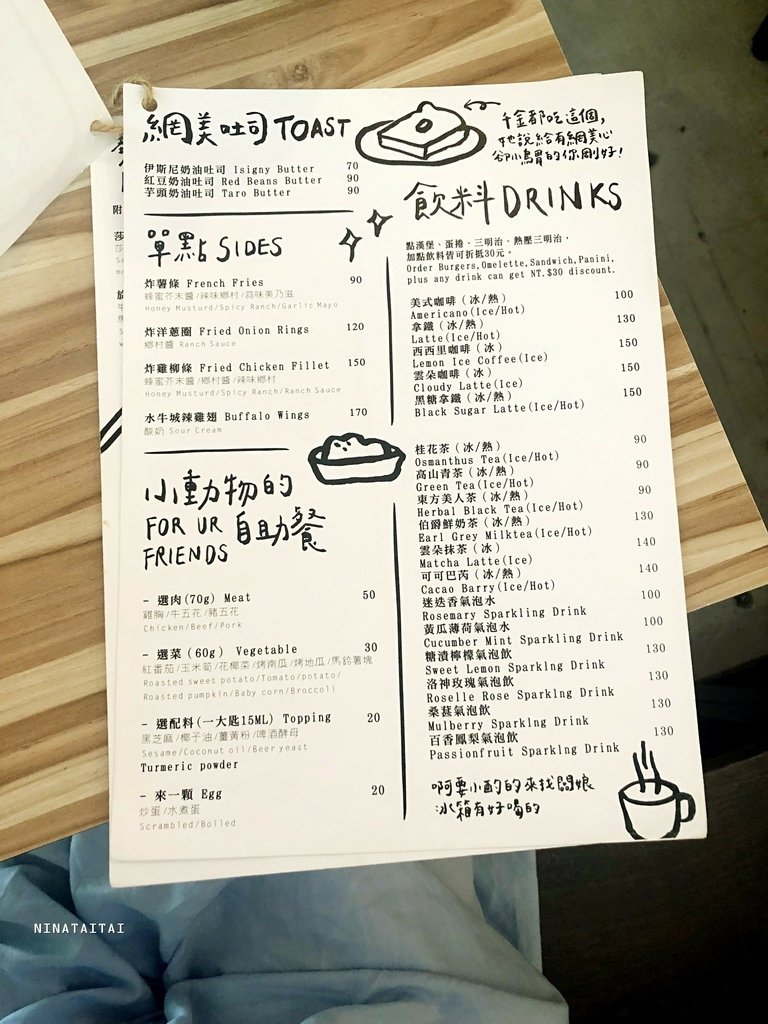 網美吐司 TOAST
千金都吃這個,
他說給有網美心
卻小鳥胃的你剛好!
伊斯尼奶油吐司 Isigny Butter 70
紅豆奶油吐司 Red Beans Butter 90
芋頭奶油吐司 Taro Butter 90
單點 SIDES
炸薯條 French Fries 90
蜂蜜芥末醬/辣味鄉村/蒜味美乃滋
Honey Musturd/Spicy Ranch/Garlic Mayo
炸洋蔥圈 Fried Onion Rings 120
鄉村醬 Ranch Sauce
炸雞柳條 Fried Chicken Fillet 150
蜂蜜芥末醬/鄉村醬/辣味鄉村
Honey Musturd/Spicy Ranch/Ranch Sauce
水牛城辣雞翅 Buffalo Wings 170
酸奶 Sour Cream
小動物的
FOR UR 自助餐
FRIENDS
- 選肉(70g) Meat 50
雞胸/牛五花/豬五花
Chicken/Beef/Pork
- 選菜 (60g) Vegetable 30
紅番茄/玉米筍/花椰菜/烤南瓜/烤地瓜/馬鈴薯塊
Roasted sweet potato/Tomato/potato/
Roasted pumpkin/Baby corn/Broccoli
- 選配料(一大匙15ML) Topping 20
黑芝麻/椰子油/薑黃粉/啤酒酵母
Sesame/Coconut oil/Beer yeast
Turmeric powder
- 來一顆 Egg 20
炒蛋/水煮蛋
Scrambled/Boiled
飲料 DRINKS
點漢堡、蛋捲、三明治、熱壓三明治,
加點飲料皆可折抵30元。
Order Burgers,Omelette,Sandwich,Panini,
plus any drink can get NT.$30 discount.
美式咖啡 (冰/熱) 100
Americano(Ice/Hot)
拿鐵 (冰/熱) 130
Latte(Ice/Hot)
西西里咖啡 (冰) 150
Lemon Ice Coffee(Ice)
雲朵咖啡 (冰) 150
Cloudy Latte(Ice)
黑糖拿鐵 (冰/熱) 150
Black Sugar Latte(Ice/Hot)
桂花茶 (冰/熱) 90
Osmanthus Tea(Ice/Hot)
高山青茶 (冰/熱) 90
Green Tea(Ice/Hot)
東方美人茶 (冰/熱) 90
Herbal Black Tea(Ice/Hot)
伯爵鮮奶茶 (冰/熱) 130
Earl Grey Milktea(Ice/Hot)
雲朵抹茶 (冰) 140
Matcha Latte(Ice)
可可巴芮 (冰/熱) 140
Cacao Barry(Ice/Hot)
迷迭香氣泡水 100
Rosemary Sparkling Drink
黃瓜薄荷氣泡水 100
Cucumber Mint Sparkling Drink
糖漬檸檬氣泡飲 130
Sweet Lemon Sparklng Drink
洛神玫瑰氣泡飲 130
Roselle Rose Sparklng Drink
桑葚氣泡飲 130
Mulberry Sparklng Drink
百香鳳梨氣泡飲 130
Passionfruit Sparklng Drink
啊要小酌的來找闆娘
冰箱有好喝的
NINATAITAI